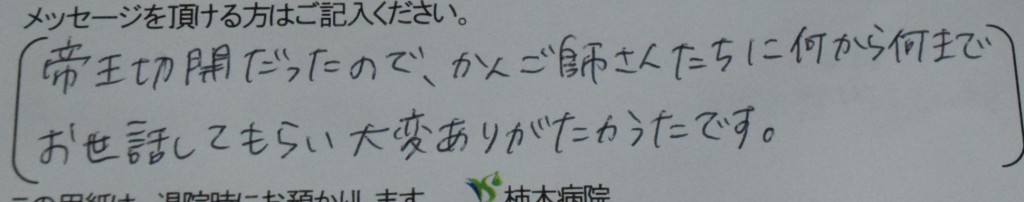 メッセージを頂ける方はご記入ください。
帝王切開だったので、かんご師さんたちに何から何まで
お世話してもらい大変ありがたかったです。
この用紙は、退院時にお預かりします
柿本病院